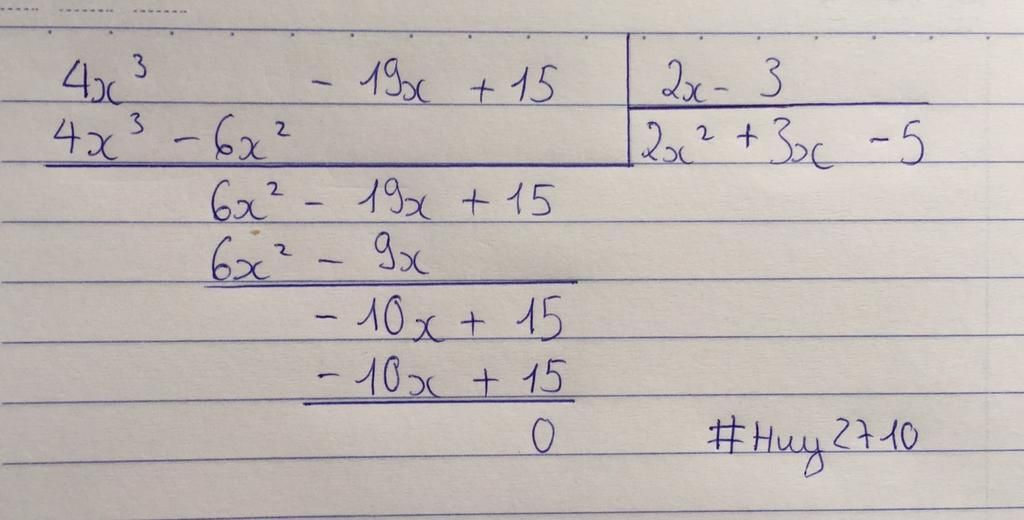 4x³ - 19x + 15 2x - 3
4x³ - 6x² 2x² + 3x - 5
6x² - 19x + 15
6x² - 9x
- 10x + 15
- 10x + 15
0 #Huy2710